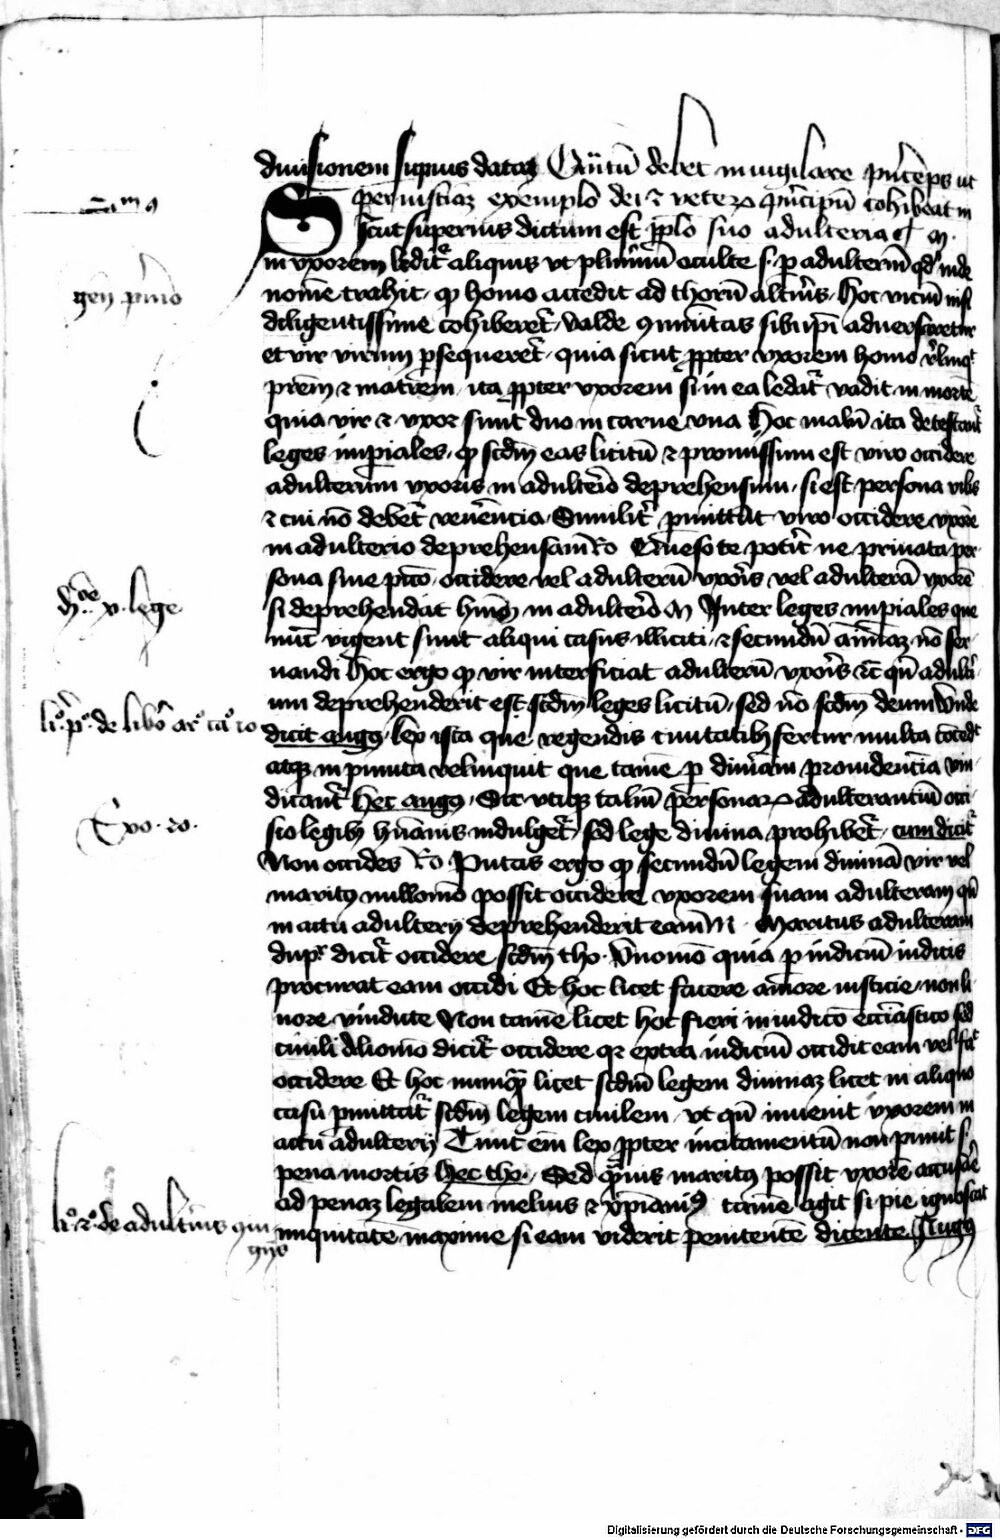 diuisionem supius datas Quantum debet inuigilare princeps ut
per iusticiam exemplo dei et veterum principum cohibeat in
Sicut superius dictum est pplo suo adulteria
in vxorem leditur aliquis vt plurimum occulte s. p adulterium qd inde
nomen trahit, qp homo accedit ad thorum alterius. Hoc vicium nisi
diligentissime cohiberetur, valde ciuitas sibi ipsi aduersaretur
et vir virum psequeretur, quia sicut ppter vxorem homo relinquit
patrem et matrem, ita ppter vxorem si in ea leditur vadit in mortem
quia vir et vxor sunt duo in carne vna Hoc malum ita detestantur
leges imperiales, qp scdm eas licitum et promissum est viro occidere
adulterum vxoris in adulterio deprehensum, si est persona vilis
et cui non debetur reuerencia. Similiter pmittitur viro occidere vxorem
in adulterio deprehensam Ro Queso te poterit ne priuata per
sona sine pcco occidere vel adulterum vxoris vel adulteram vxorem
si deprehendat in adulterio M Inter leges imperiales que
nunc vigent sunt aliqui casus illiciti et secundum animam non ser
uandi Hoc ergo qp vir interficiat adulterum vxoris etc qn adulteri
um deprehenderit est scdm leges licitum, sed non scdm deum Vnde
dicit augus, lex ista que regendis ciuitatibus fertur multa concedit
atque impunita relinquit que tamen p diuinam prouidenciam vin
dicantur hec augus, Sic vtique talium personarum adulterantium occi
sio legibus humanis indulgetur, sed lege diuina prohibetur, cum dicitur
Non occides Ro Putas ergo qp secundum legem diuinam vir vel
maritus nullomodo possit occidere vxorem suam adulteram qn
in actu adulterij deprehenderit eam M. Maritus adulteram
dupr dicitur occidere scdm tho. Vnomodo quia p iudicium iudicis
procurat eam occidi Et hoc licet facere amore iusticie, non li
uore vindicte Non tamen licet hoc fieri in iudicio ecclesiastico sed
ciuili Aliomodo dicitur occidere qr extra iudicium occidit eam vel
occidere Et hoc nunquam licet scdm legem diuinam licet in aliquo
casu pmittatur scdm legem ciuilem, vt qn inuenit vxorem in
actu adulterij Tunc enim lex ppter incitamentum non punit s.
pena mortis hec tho. Sed quamuis maritus possit vxorem accusare
ad penam legalem melius et xpianius tamen agit si pie ignoscat
iniquitatem maxime si eam viderit penitentem dicente Augus
gen primo
v. lege
li. p. de libero ar. ca. 10
Exo. 20.
li. 2. de adulterinis coniugijs